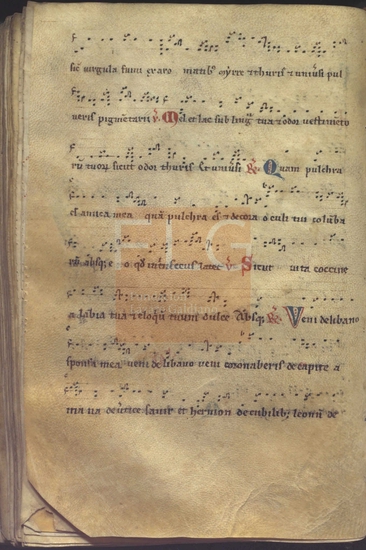 sic virgula fumi ex aro matib' myrre & thuris & univsi pul
veris pigmetarii V. Mel et lac sub ling' tua & odor vestimeto
ru tuoru sicut odor thuris Et univsi R. Quam pulchra
es amica mea qua pulchra es & decora oculi tui coluba
ru absq; eo qd intrinsecus latet V. Sicut vita coccine
a labia tua & eloquiu tuum dulce Absq; R. Veni de libano
sponsa mea veni de libano veni coronaberis de capite a
mana de vtice sanir et hermon de cubilib; leonu de